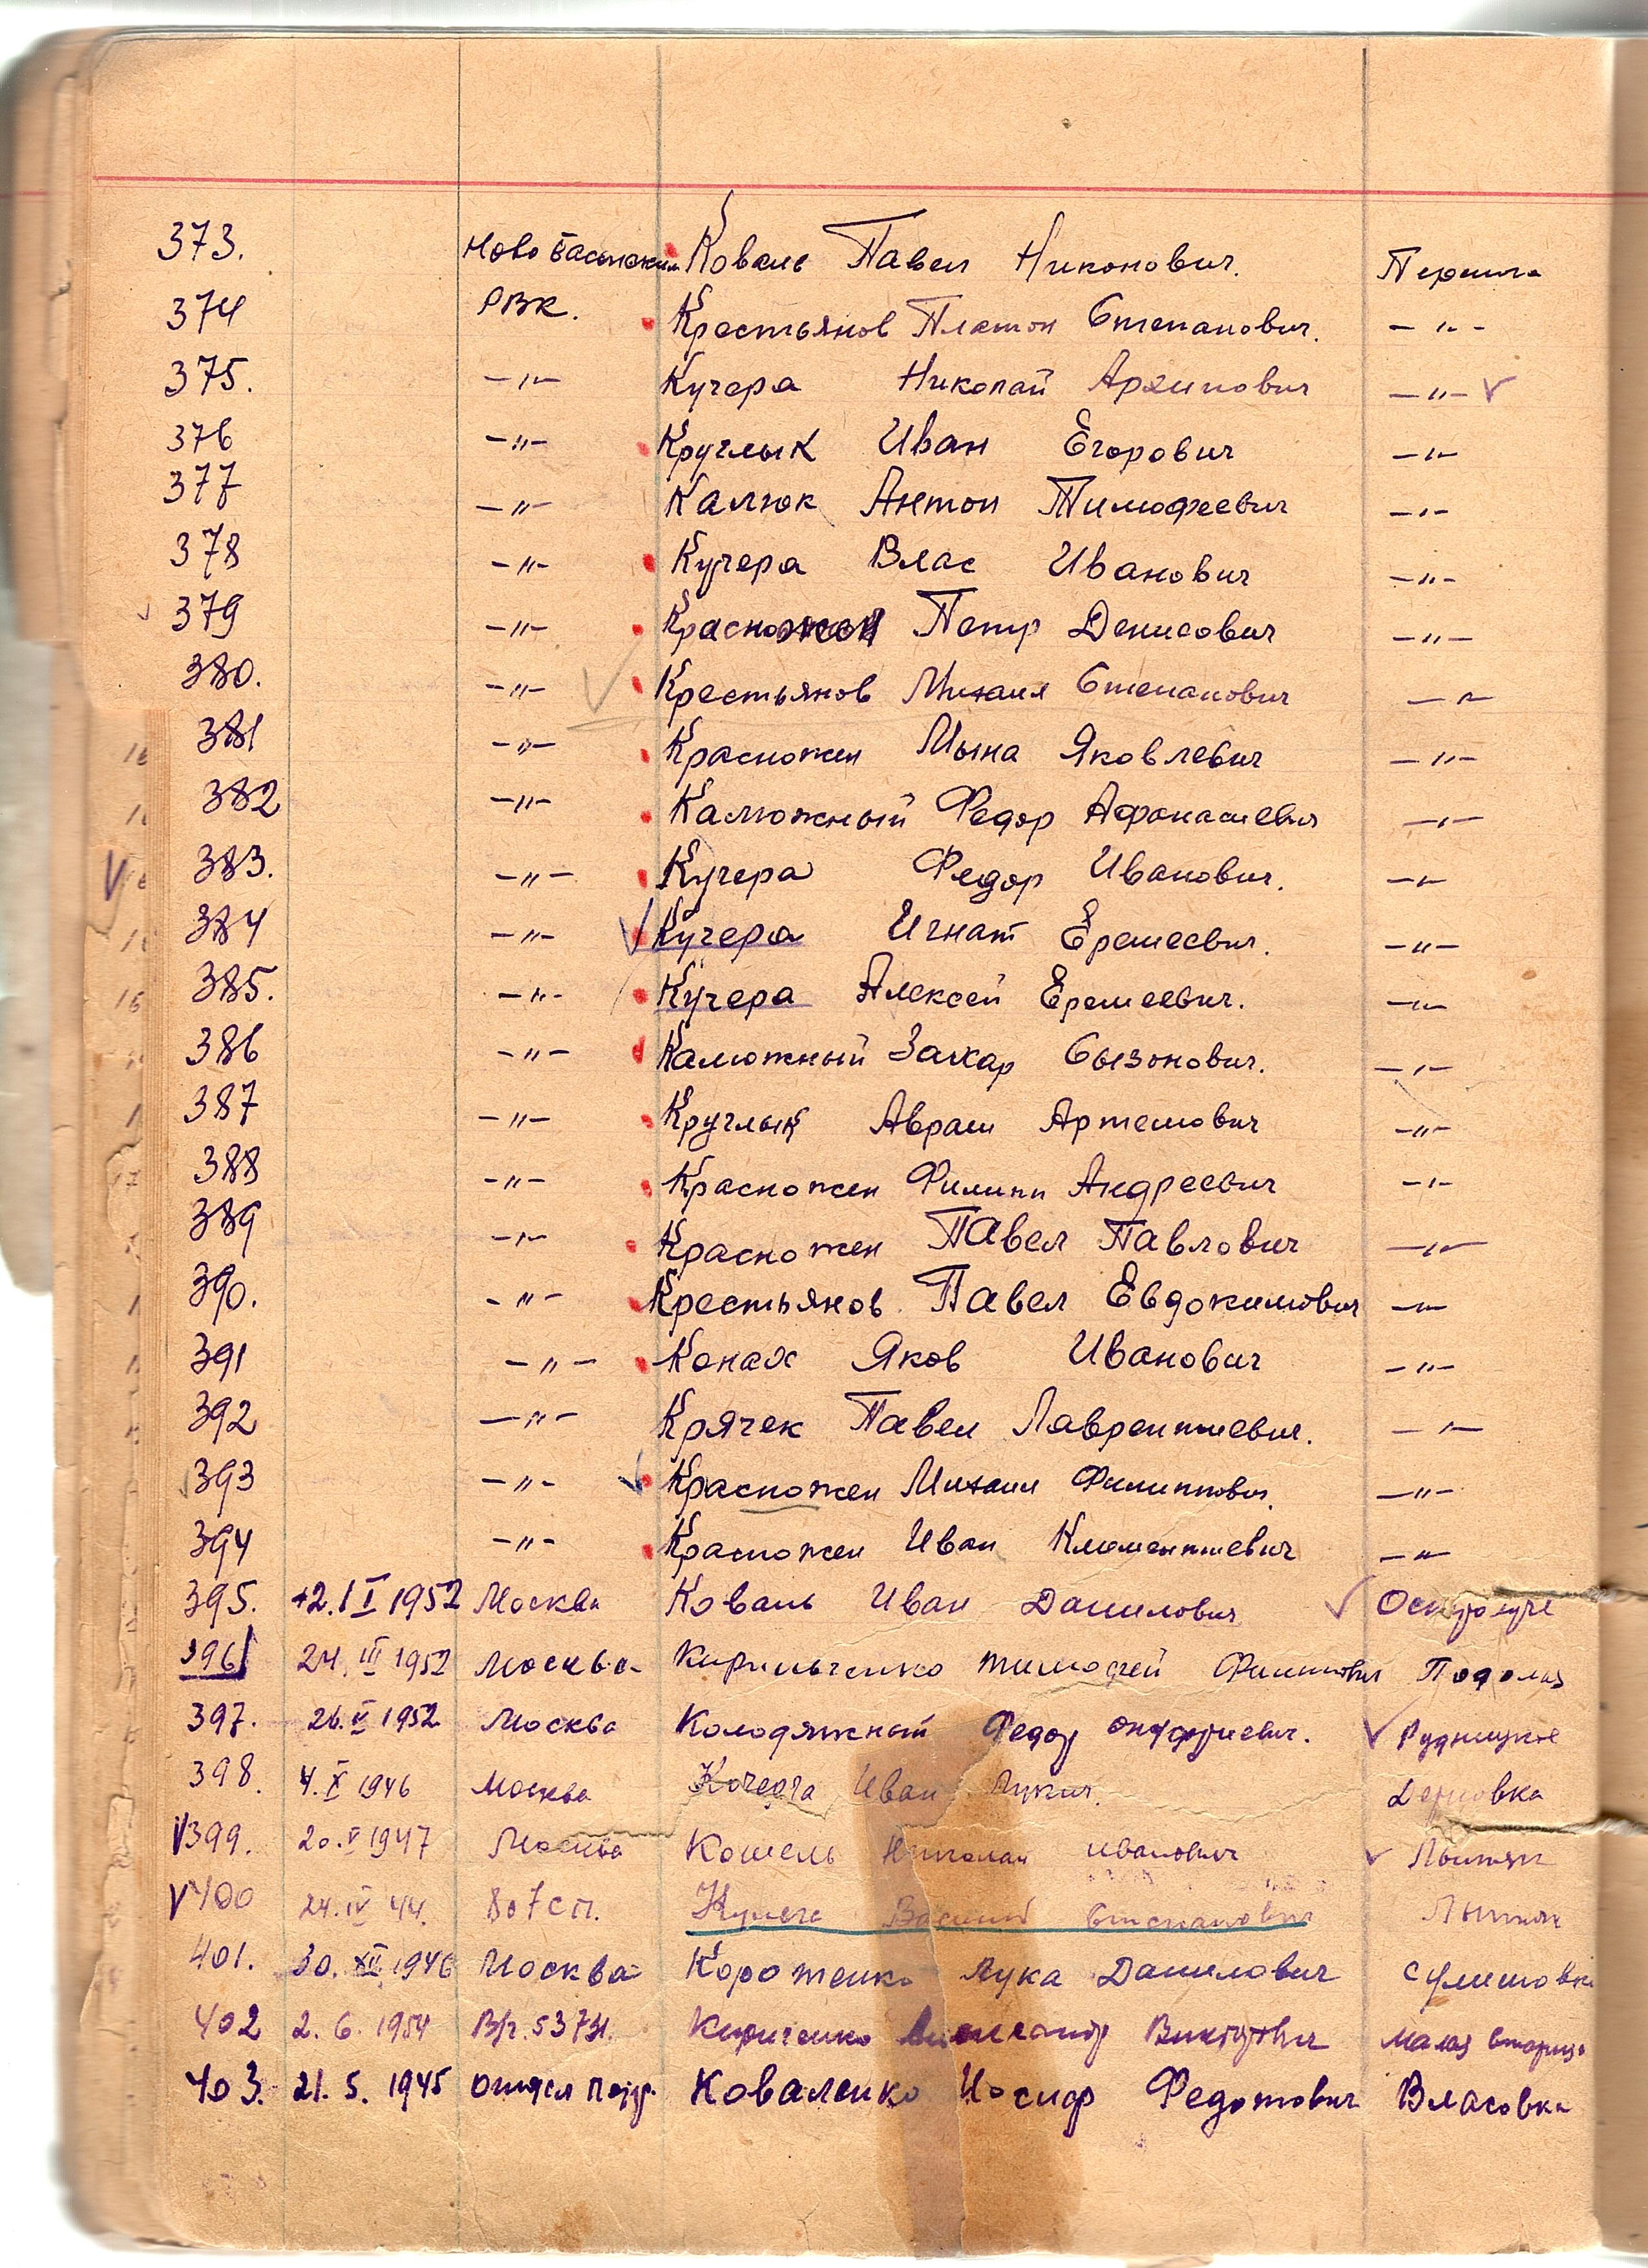 373. Ново Басанским Коваль Павел Никонович. Першла
374 РВК. Крестьянов Платон Степанович. — " —
375. — " — Кучера Николай Архипович — " —
376 — " — Круглык Иван Егорович — " —
377 — " — Калюк Антон Тимофеевич — " —
378 — " — Кучера Влас Иванович — " —
379 — " — Красножен Петр Денисович — " —
380. — " — Крестьянов Михаил Степанович — " —
381 — " — Красножен Мына Яковлевич — " —
382 — " — Калюжный Федор Афанасиевич — " —
383. — " — Кучера Федор Иванович. — " —
384 — " — Кучера Игнат Еремеевич. — " —
385. — " — Кучера Алексей Еремеевич. — " —
386 — " — Калюжный Захар Сызонович. — " —
387 — " — Круглык Аврам Артемович — " —
388 — " — Красножен Филипп Андреевич — " —
389 — " — Красножен Павел Павлович — " —
390. — " — Крестьянов Павел Евдокимович — " —
391 — " — Конах Яков Иванович — " —
392 — " — Крячек Павел Лаврентиевич. — " —
393 — " — Красножен Михаил Филиппович. — " —
394 — " — Красножен Иван Климентиевич — " —
395. 1952 Москва Коваль Иван Данилович Остролуче
396 24. III 1952 Москва Кирильченко тимофей Филиппович Подолия
397. 26. 1952 Москва Колодяжный Федор онуфриевич. Рудницкое
398. 4. X 1946 Москва Кочерга Иван Лукич. Дерновка
399. 20. V 1947 Москва Кошель Николай иванович
400 24. IV 44. 807 СП. Василий степанович
401. 30. XII 1946 Москва Коротенко Лука Данилович Сулимовка
402 2. 6. 1954 В/ч. 53741. Кириченко Александр Викторович малая
403. 21. 5. 1945 Коваленко Иосиф Федотович Власовка